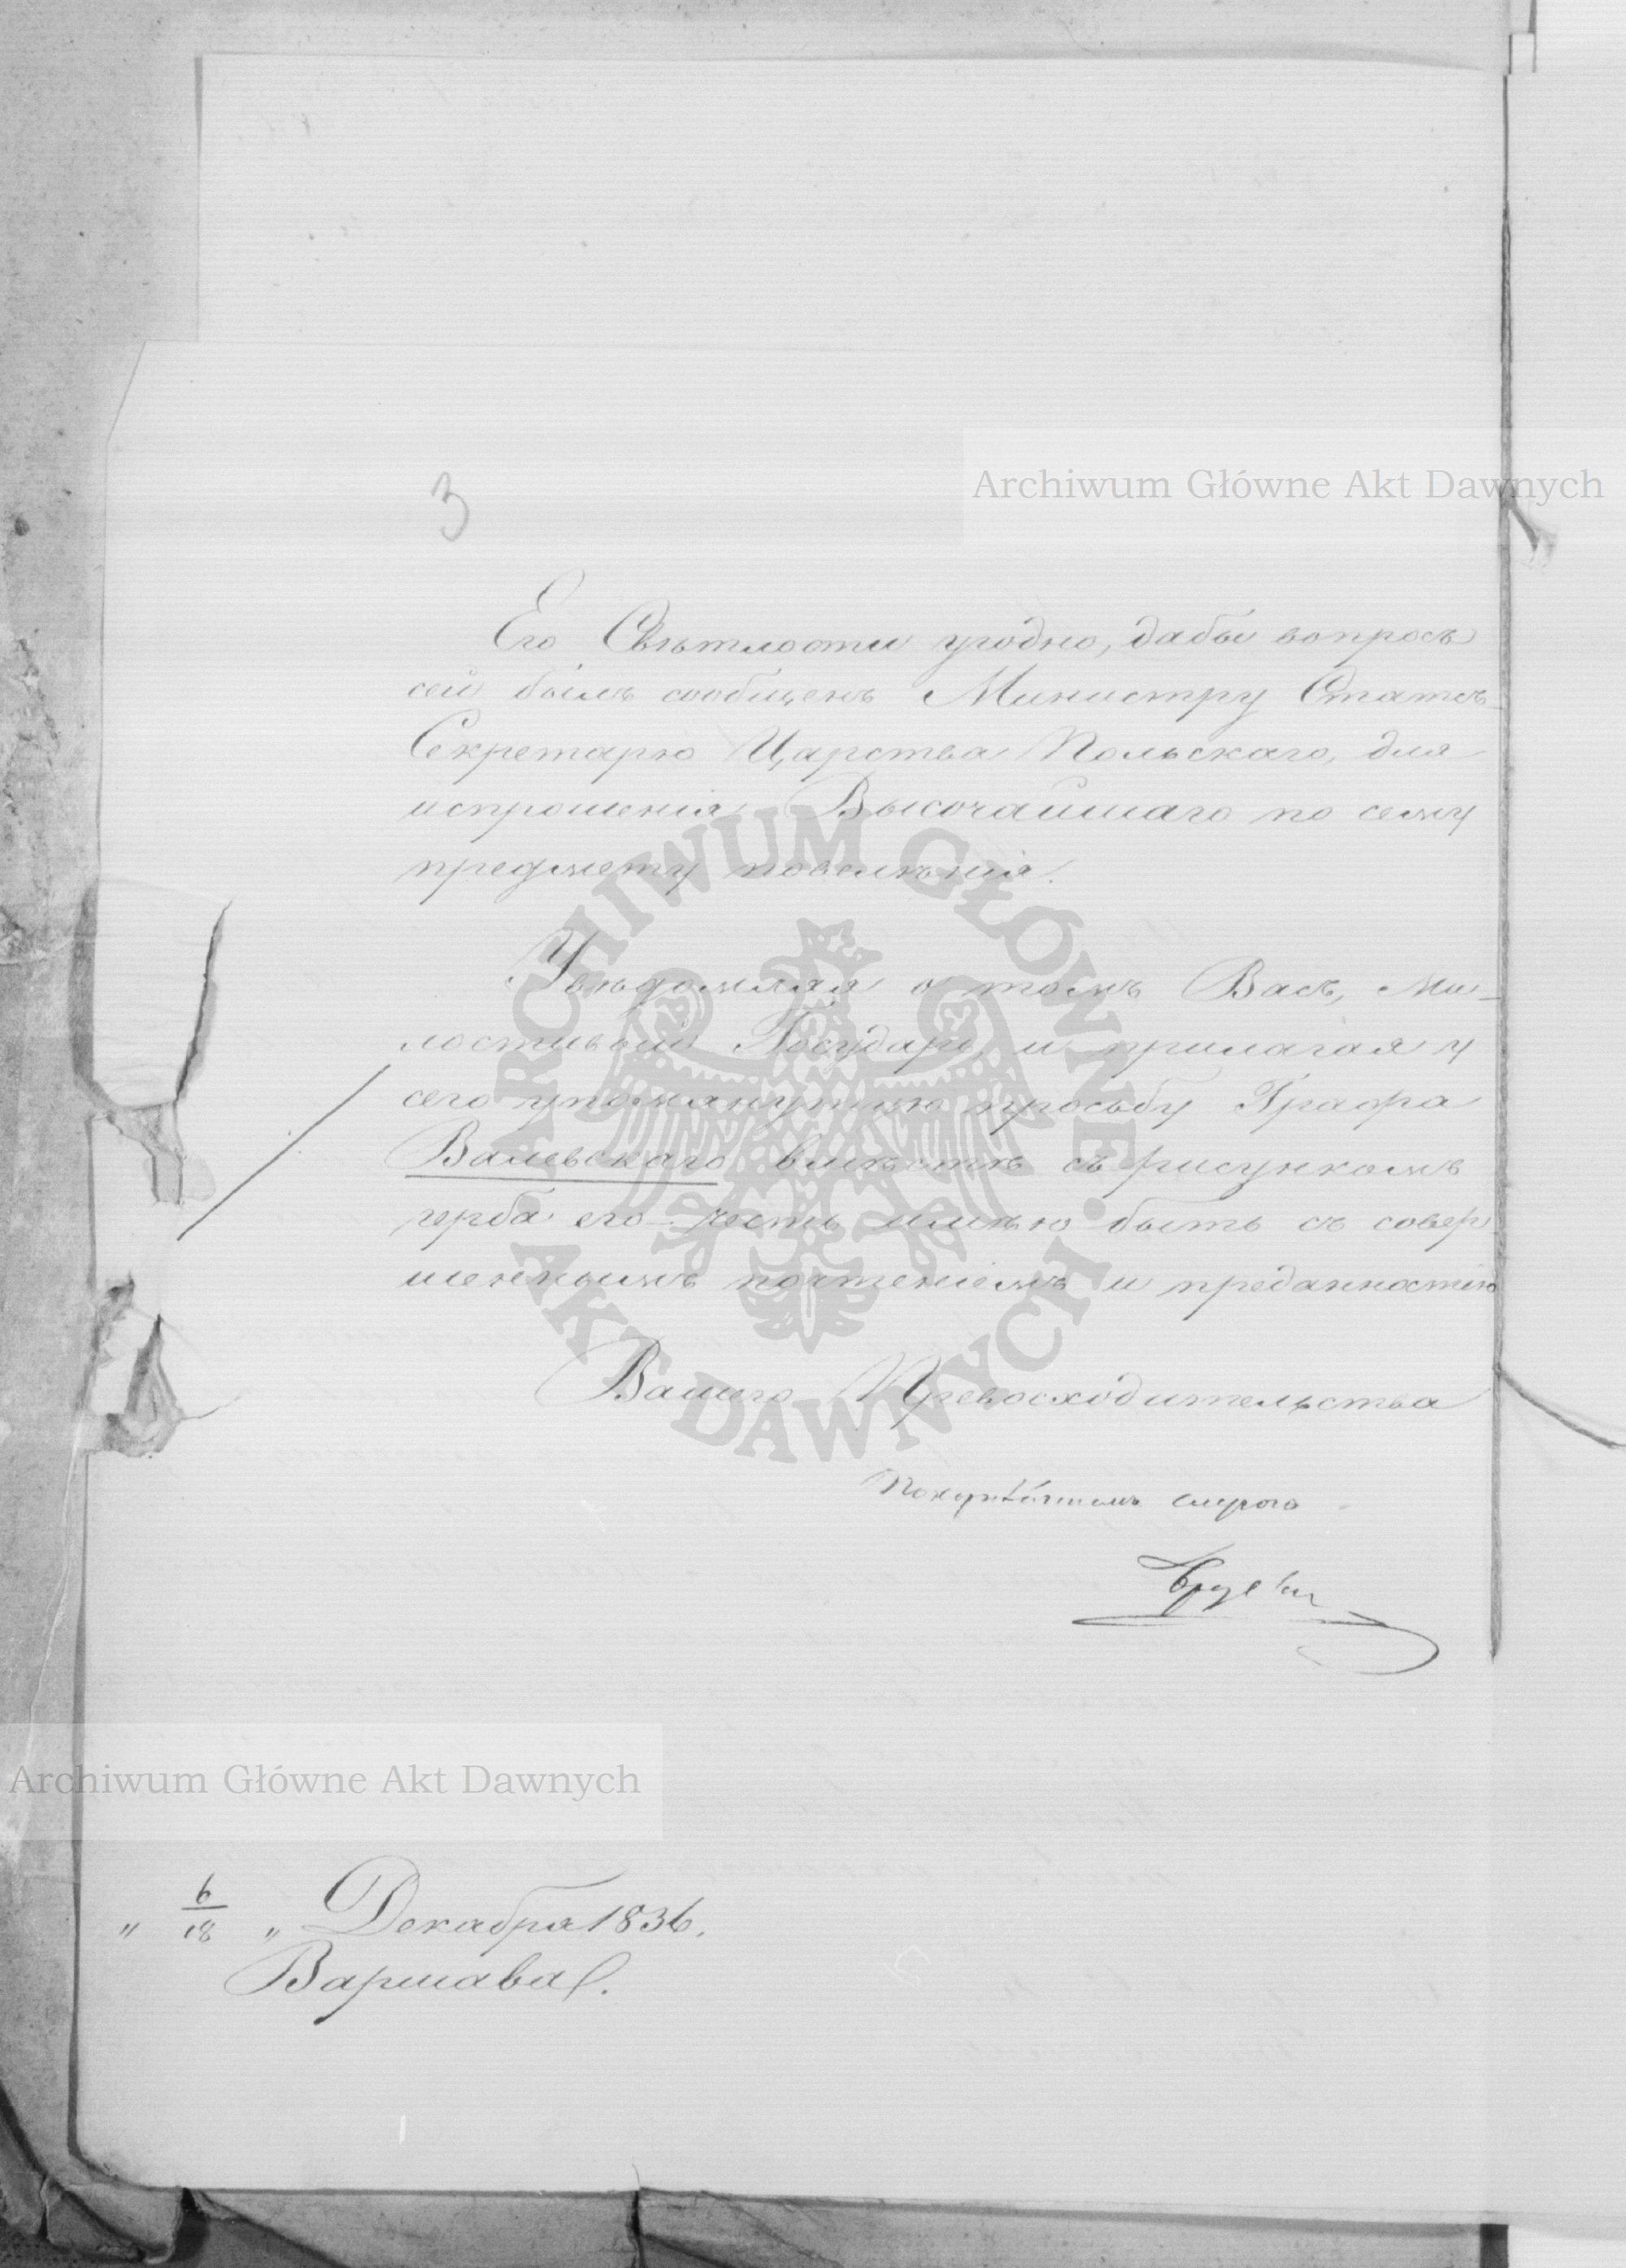 3
Archiwum Główne Akt Dawnych
Его Свѣтлости угодно, дабы вопросъ
сей былъ сообщенъ Министру Статсъ-
Секретарю Царства Польскаго, для
испрошенія Высочайшаго по сему
предмету повелѣнія.
Увѣдомляя о томъ Васъ, Ми-
лостивый Государь, и прилагая у
сего упомянутую просьбу Графа
Валевскаго вмѣстѣ съ рисункомъ
герба его честь имѣю быть съ совер
шеннымъ почтеніемъ и преданностію
Вашего Превосходительства
слугою
Archiwum Główne Akt Dawnych
„ 6/18 „ Декабря 1836.
Варшава.
ARCHIWUM GŁÓWNE · AKT DAWNYCH ·